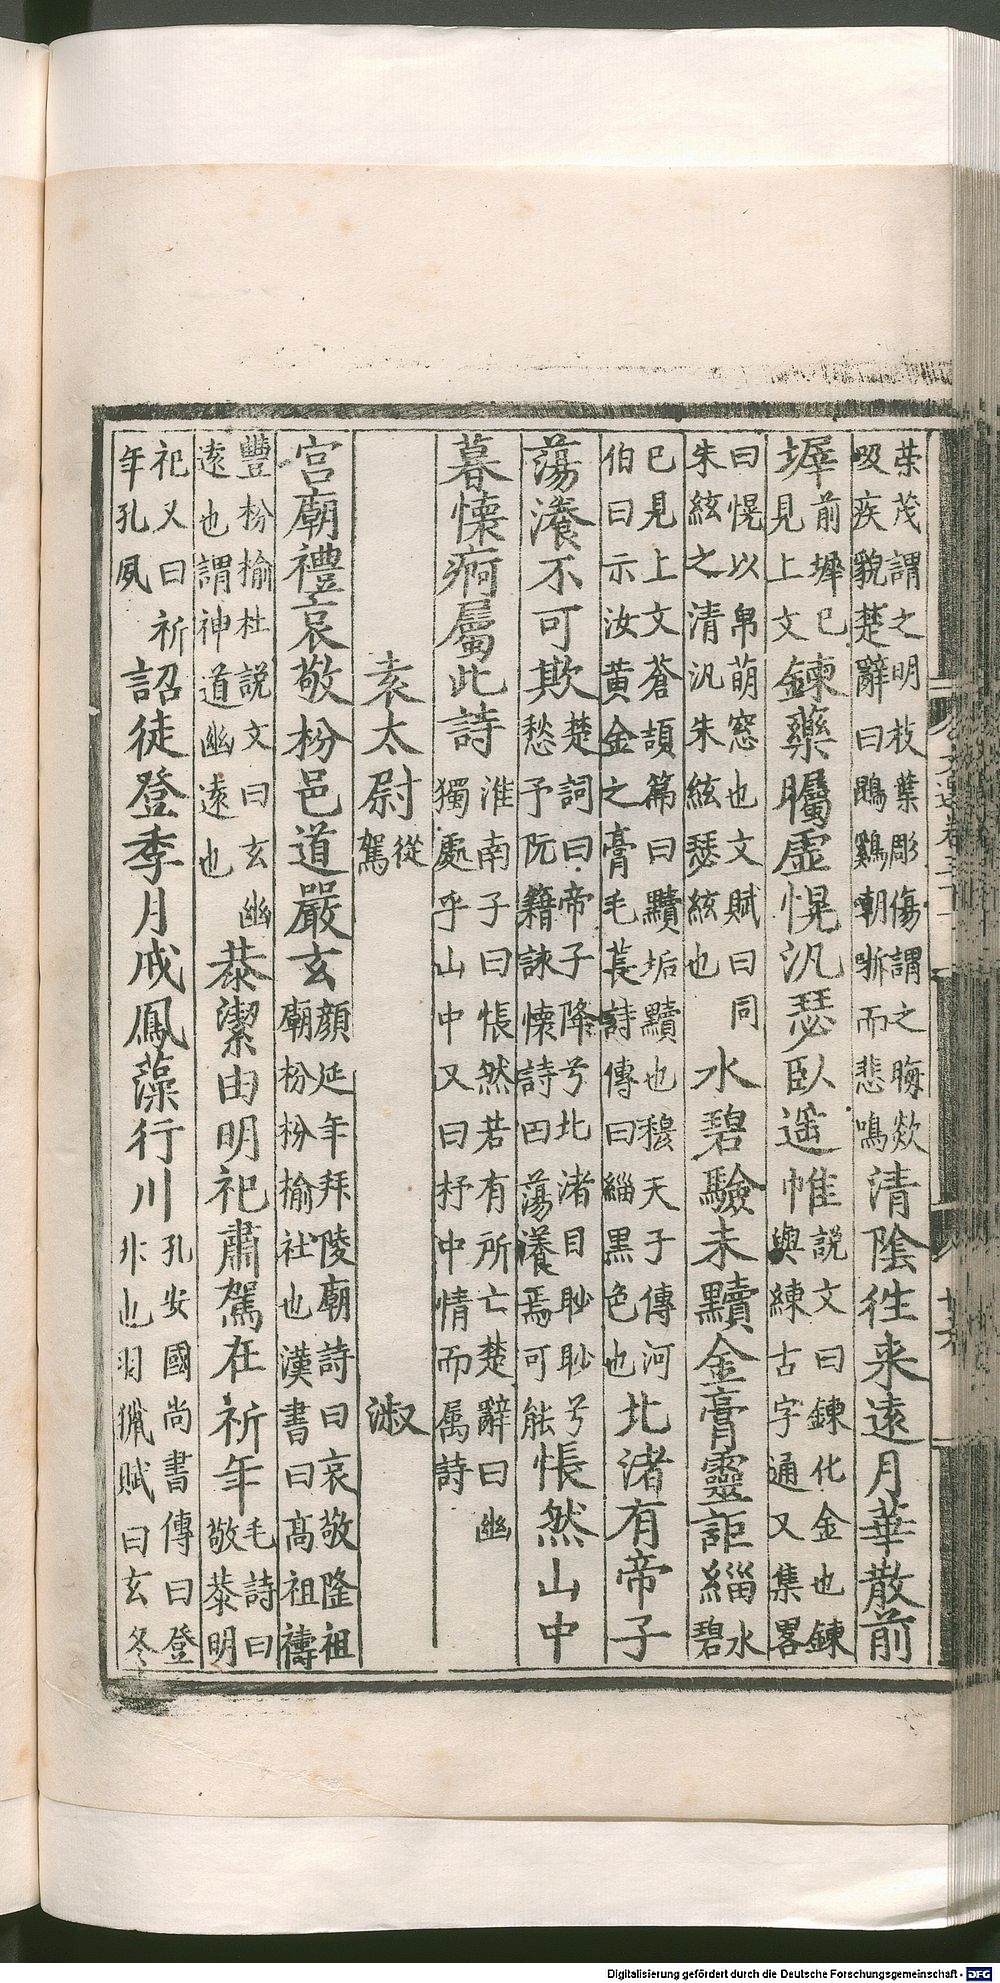 榮茂謂之明枝葉彫傷謂之晦欻
吸疾貌楚辭曰鵾鷄朝哳而悲鳴
清陰徃来遠月華散前
墀
前墀已
見上文
鍊藥矚虛幌汎瑟臥遥帷
説文曰鍊化金也鍊
與練古字通又集畧
曰幌以帛萌窓也文賦曰同
朱絃之清汎朱絃瑟絃也
水碧驗未黷金膏靈詎緇
水
碧
已見上文蒼頡篇曰黷垢黷也穆天子傳河
伯曰示汝黄金之膏毛萇詩傳曰緇黒色也
北渚有帝子
蕩瀁不可欺
楚詞曰帝子降兮北渚目眇眇兮
愁予阮籍詠懷詩曰蕩瀁焉可能
悵然山中
暮懷痾屬此詩
淮南子曰悵然若有所亡楚辭曰幽
獨處乎山中又曰抒中情而属詩
袁太尉
從
駕
淑
宫廟禮哀敬枌邑道嚴玄
顔延年拜陵廟詩曰哀敬隆祖
廟枌枌榆社也漢書曰髙祖禱
豐枌榆杜説文曰玄幽
遠也謂神道幽遠也
㳟潔由明祀肅駕在祈年
毛詩曰
敬㳟明
祀又曰祈
年孔夙
詔徒登季月戒鳳藻行川
孔安國尚書傳曰登
升也羽獵賦曰玄冬
Digitalisierung gefördert durch die Deutsche Forschungsgemeinschaft - DFG